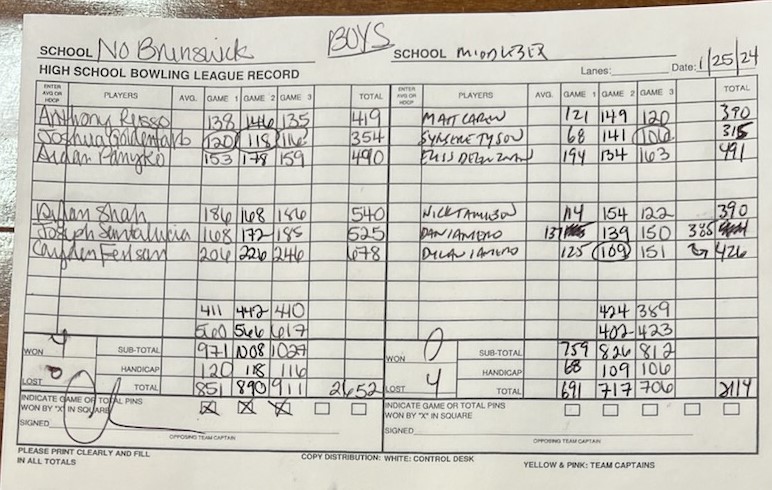 BOYS
SCHOOL No Brunswick SCHOOL MIDDLESEX
HIGH SCHOOL BOWLING LEAGUE RECORD Lanes: Date: 1/25/24
ENTER AVG OR HDCP PLAYERS AVG. GAME 1 GAME 2 GAME 3 TOTAL ENTER AVG OR HDCP PLAYERS AVG. GAME 1 GAME 2 GAME 3 TOTAL
Anthony Russo 138 146 135 419 MATT 121 149 120 390
Joshua 120 118 116 354 TYSON 68 141 106 315
Aidan 153 178 159 490 194 134 163 491
Shah 186 168 186 540 NICK 114 154 122 390
Joseph Santalucia 168 172 185 525 DAN 137 139 150 385
Cayden 206 226 246 678 DYLAN 125 109 151 426
411 442 410 424 389
560 566 617 402 423
WON 4 SUB-TOTAL 971 1008 1027 WON 0 SUB-TOTAL 759 826 812
HANDICAP 120 118 116 HANDICAP 68 109 106
LOST 0 TOTAL 851 890 911 2652 LOST 4 TOTAL 691 717 706 2114
INDICATE GAME OR TOTAL PINS INDICATE GAME OR TOTAL PINS
WON BY "X" IN SQUARE X X X WON BY "X" IN SQUARE
SIGNED SIGNED
OPPOSING TEAM CAPTAIN OPPOSING TEAM CAPTAIN
PLEASE PRINT CLEARLY AND FILL COPY DISTRIBUTION: WHITE: CONTROL DESK YELLOW & PINK: TEAM CAPTAINS
IN ALL TOTALS